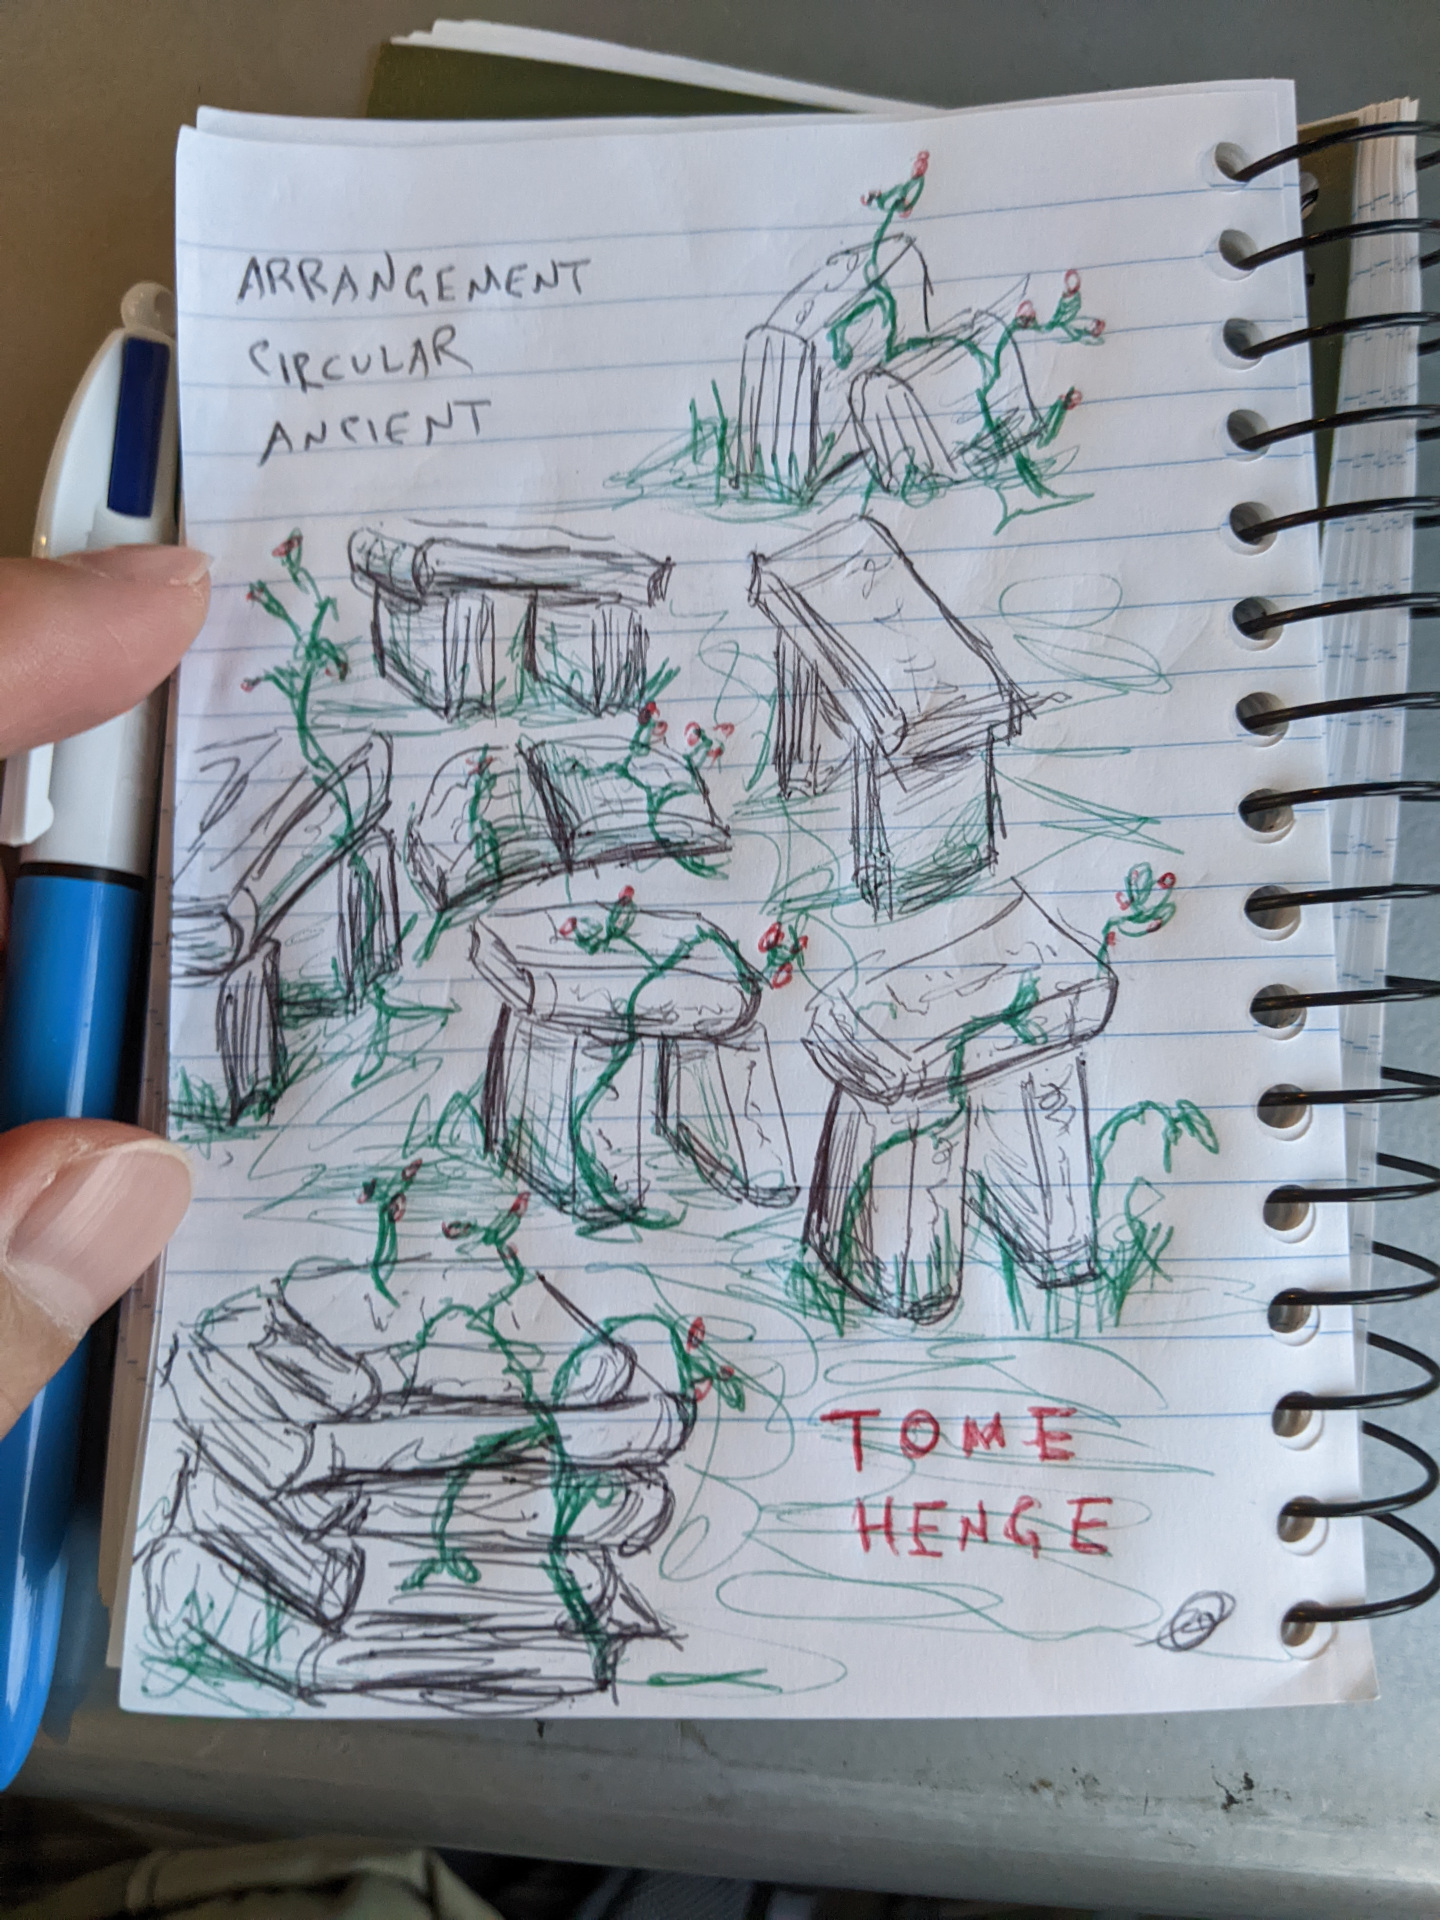 ARRANGEMENT
CIRCULAR
ANCIENT
TOME
HENGE